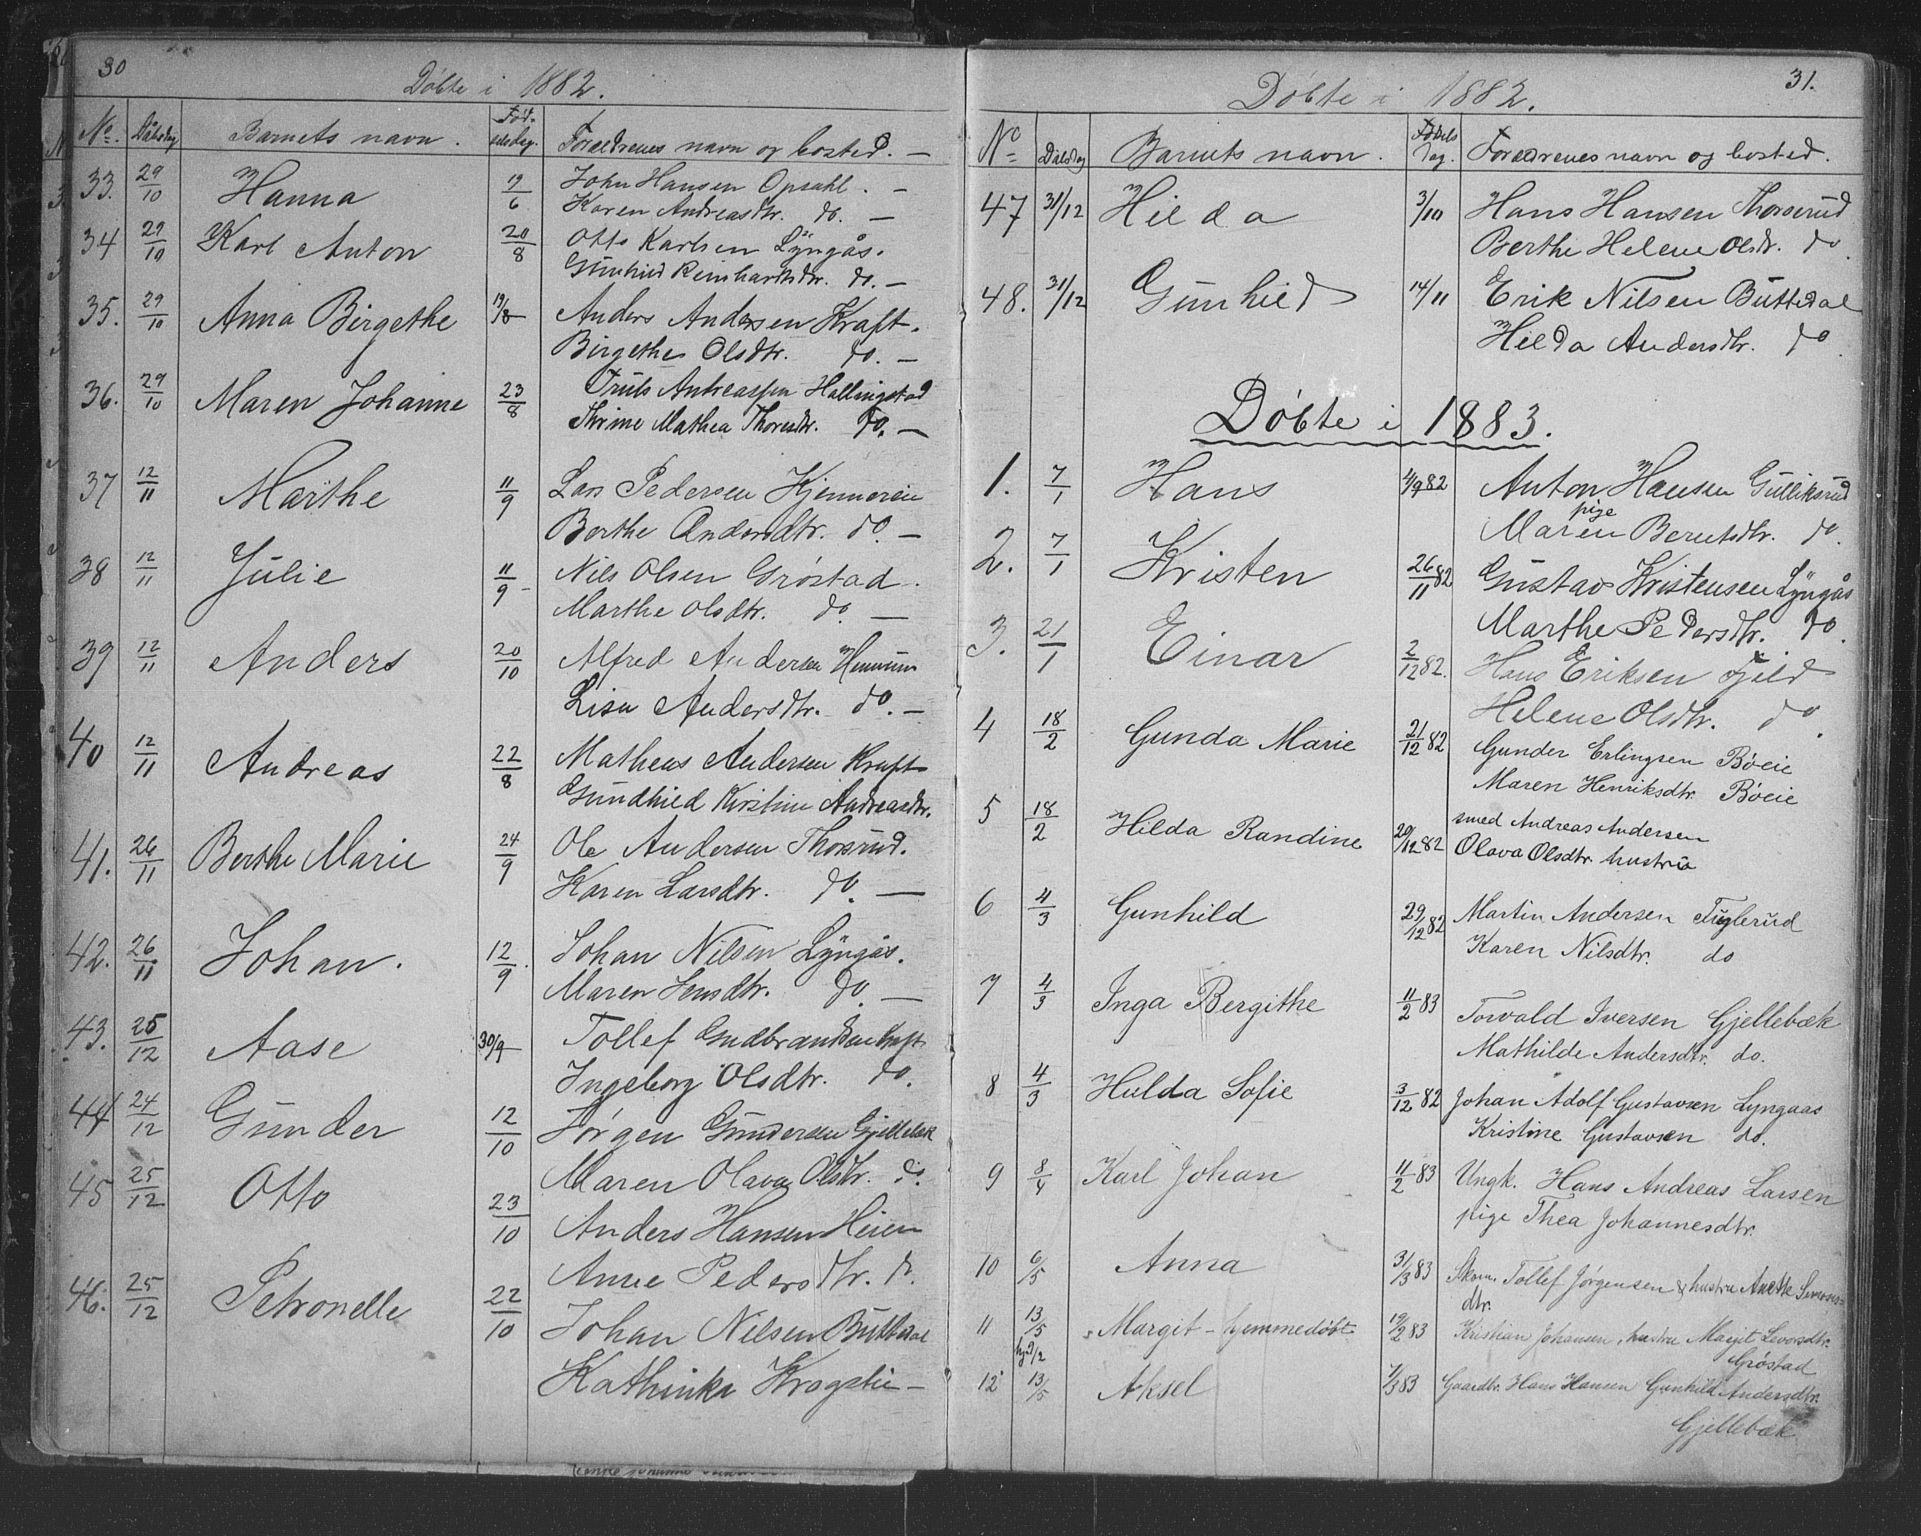 30
Döbte i 1882.
No. Dåbsdag Barnets navn. Fødselsdag. Forældrenes navn og bosted. —
33. 29/10 Hanna 19/6 John Hansen Opsahl. —
Karen Andreasdtr. do. —
34 29/10 Karl Anton 20/8 Otto Karlsen Lÿngås.
Gunhild Reinhardtsdr. do. —
35. 29/10 Anna Birgethe 19/8 Anders Andersen Kraft.
Birgethe Olsdtr. do. —
36. 29/10 Maren Johanne 23/8 Truls Andreassen Hallingstad
Thrine Mathea Thoresdtr. do. —
37 12/11 Marthe 11/9 Lars Pedersen Kjenneren
Berthe Andersdtr. do. —
38 12/11 Julie 11/9 Nils Olsen Grøstad.
Marthe Olsdtr. do. —
39 12/11 Anders 20/10 Alfred Andersen Hennum
Lisa Andersdtr. do. —
40 12/11 Andreas 22/8 Matheus Andersen Kraft
Gundhild Kirstine Andreasdtr.
41. 26/11 Berthe Marie 24/9 Ole Andersen Thorsrud.
Karen Larsdtr. do. —
42. 26/11 Johan. 12/9 Johan Nilsen Lÿngås.
Maren Jensdtr. do. —
43. 25/12 Aase 30/9 Tollef Gudbrandsen Kraft
Ingeborg Olsdtr. do.
44 24/12 Gunder 12/10 Jørgen Gundersen Gjellebæk
Maren Olava Olsdtr. do.
45 25/12 Otto 23/10 Anders Hansen Heien
Anne Pedersdtr. do.
46. 25/12 Petronelle 22/10 Johan Nilsen Buttedal
Kathinka Krogstie —
31.
Döbte i 1882.
No Dåbsdag Barnets navn. Fødselsdag. Forældrenes navn og bosted.
47 31/12 Hilda 3/10 Hans Hansen Thorserud
Berthe Helene Olsdtr. do.
48. 31/12 Gunhild 14/11 Erik Nilsen Buttedal
Hilda Andersdtr. do
Döbte i 1883.
1. 7/1 Hans 11/9 82 Anton Hansen Gulliksrud
pige
Maren Berntsdtr. do.
2. 7/1 Kristen 26/11 82 Gustav Kristensen Lÿngås
Marthe Pedersdtr. do.
3. 21/1 Einar 2/12 82. Hans Eriksen Fjeld
Helene Olsdtr. do.
4 18/2 Gunda Marie 21/12 82 Gunder Erlingsen Bøeie
Maren Henriksdtr. Bøeie
5 18/2 Hilda Randine 20/12 82 smed Andreas Andersen
Olava Olsdtr. hustru
6 4/3 Gunhild 29/12 82 Martin Andersen Fuglerud
Karen Nilsdtr. do
7 4/3 Inga Bergithe 11/2 83 Torvald Iversen Gjellebæk
Mathilde Andersdtr. do.
8 4/3 Hulda Sofie 3/12 82 Johan Adolf Gustavsen Lyngaas
Kristine Gustavsen do.
9 8/4 Karl Johan 11/2 83 Ungk. Hans Andreas Larsen
pige Thea Johannesdtr.
10 6/5 Anna 31/3 83 Skom. Tollef Jørgensen & hustru Anette
dtr.
11 13/5 Margit - hjemmedøbt 19/2 83 Kristian Johansen, hustru Margit Levorsdtr.
Grøstad
12 13/5 Aksel 7/3 83 Gaardbr. Hans Hansen Gunhild Andersdtr.
Gjellebæk